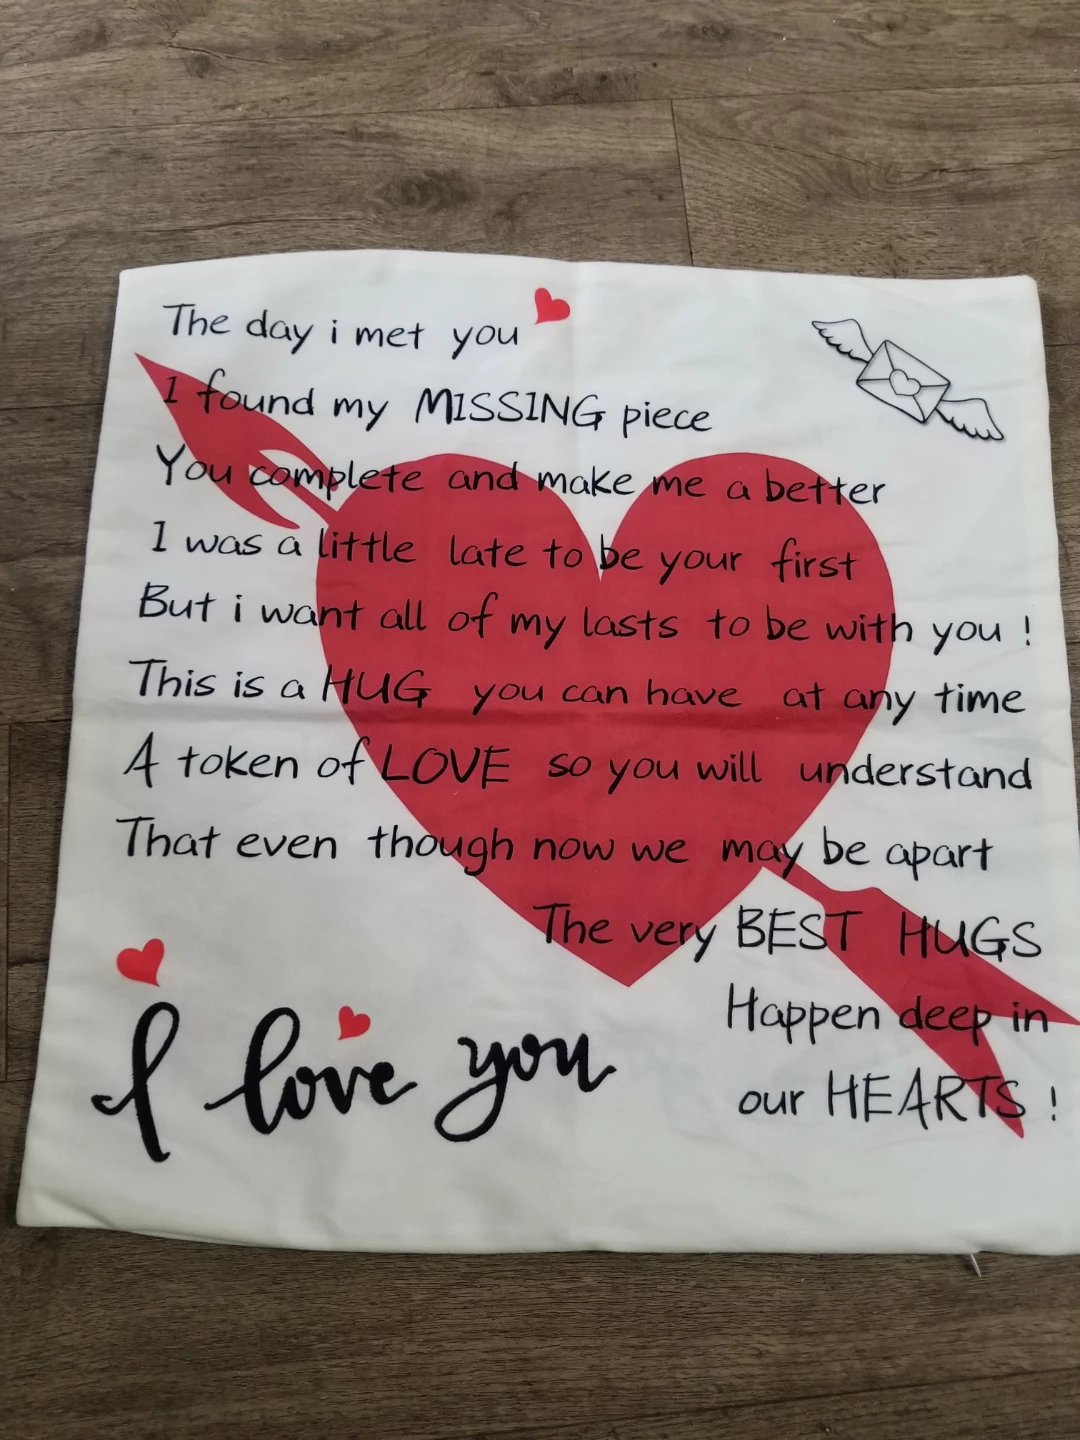 The day i met you
I found my MISSING piece
You complete and make me a better
I was a little late to be your first
But i want all of my lasts to be with you !
This is a HUG you can have at any time
A token of LOVE so you will understand
That even though now we may be apart
The very BEST HUGS
Happen deep in
our HEARTS !
I love you